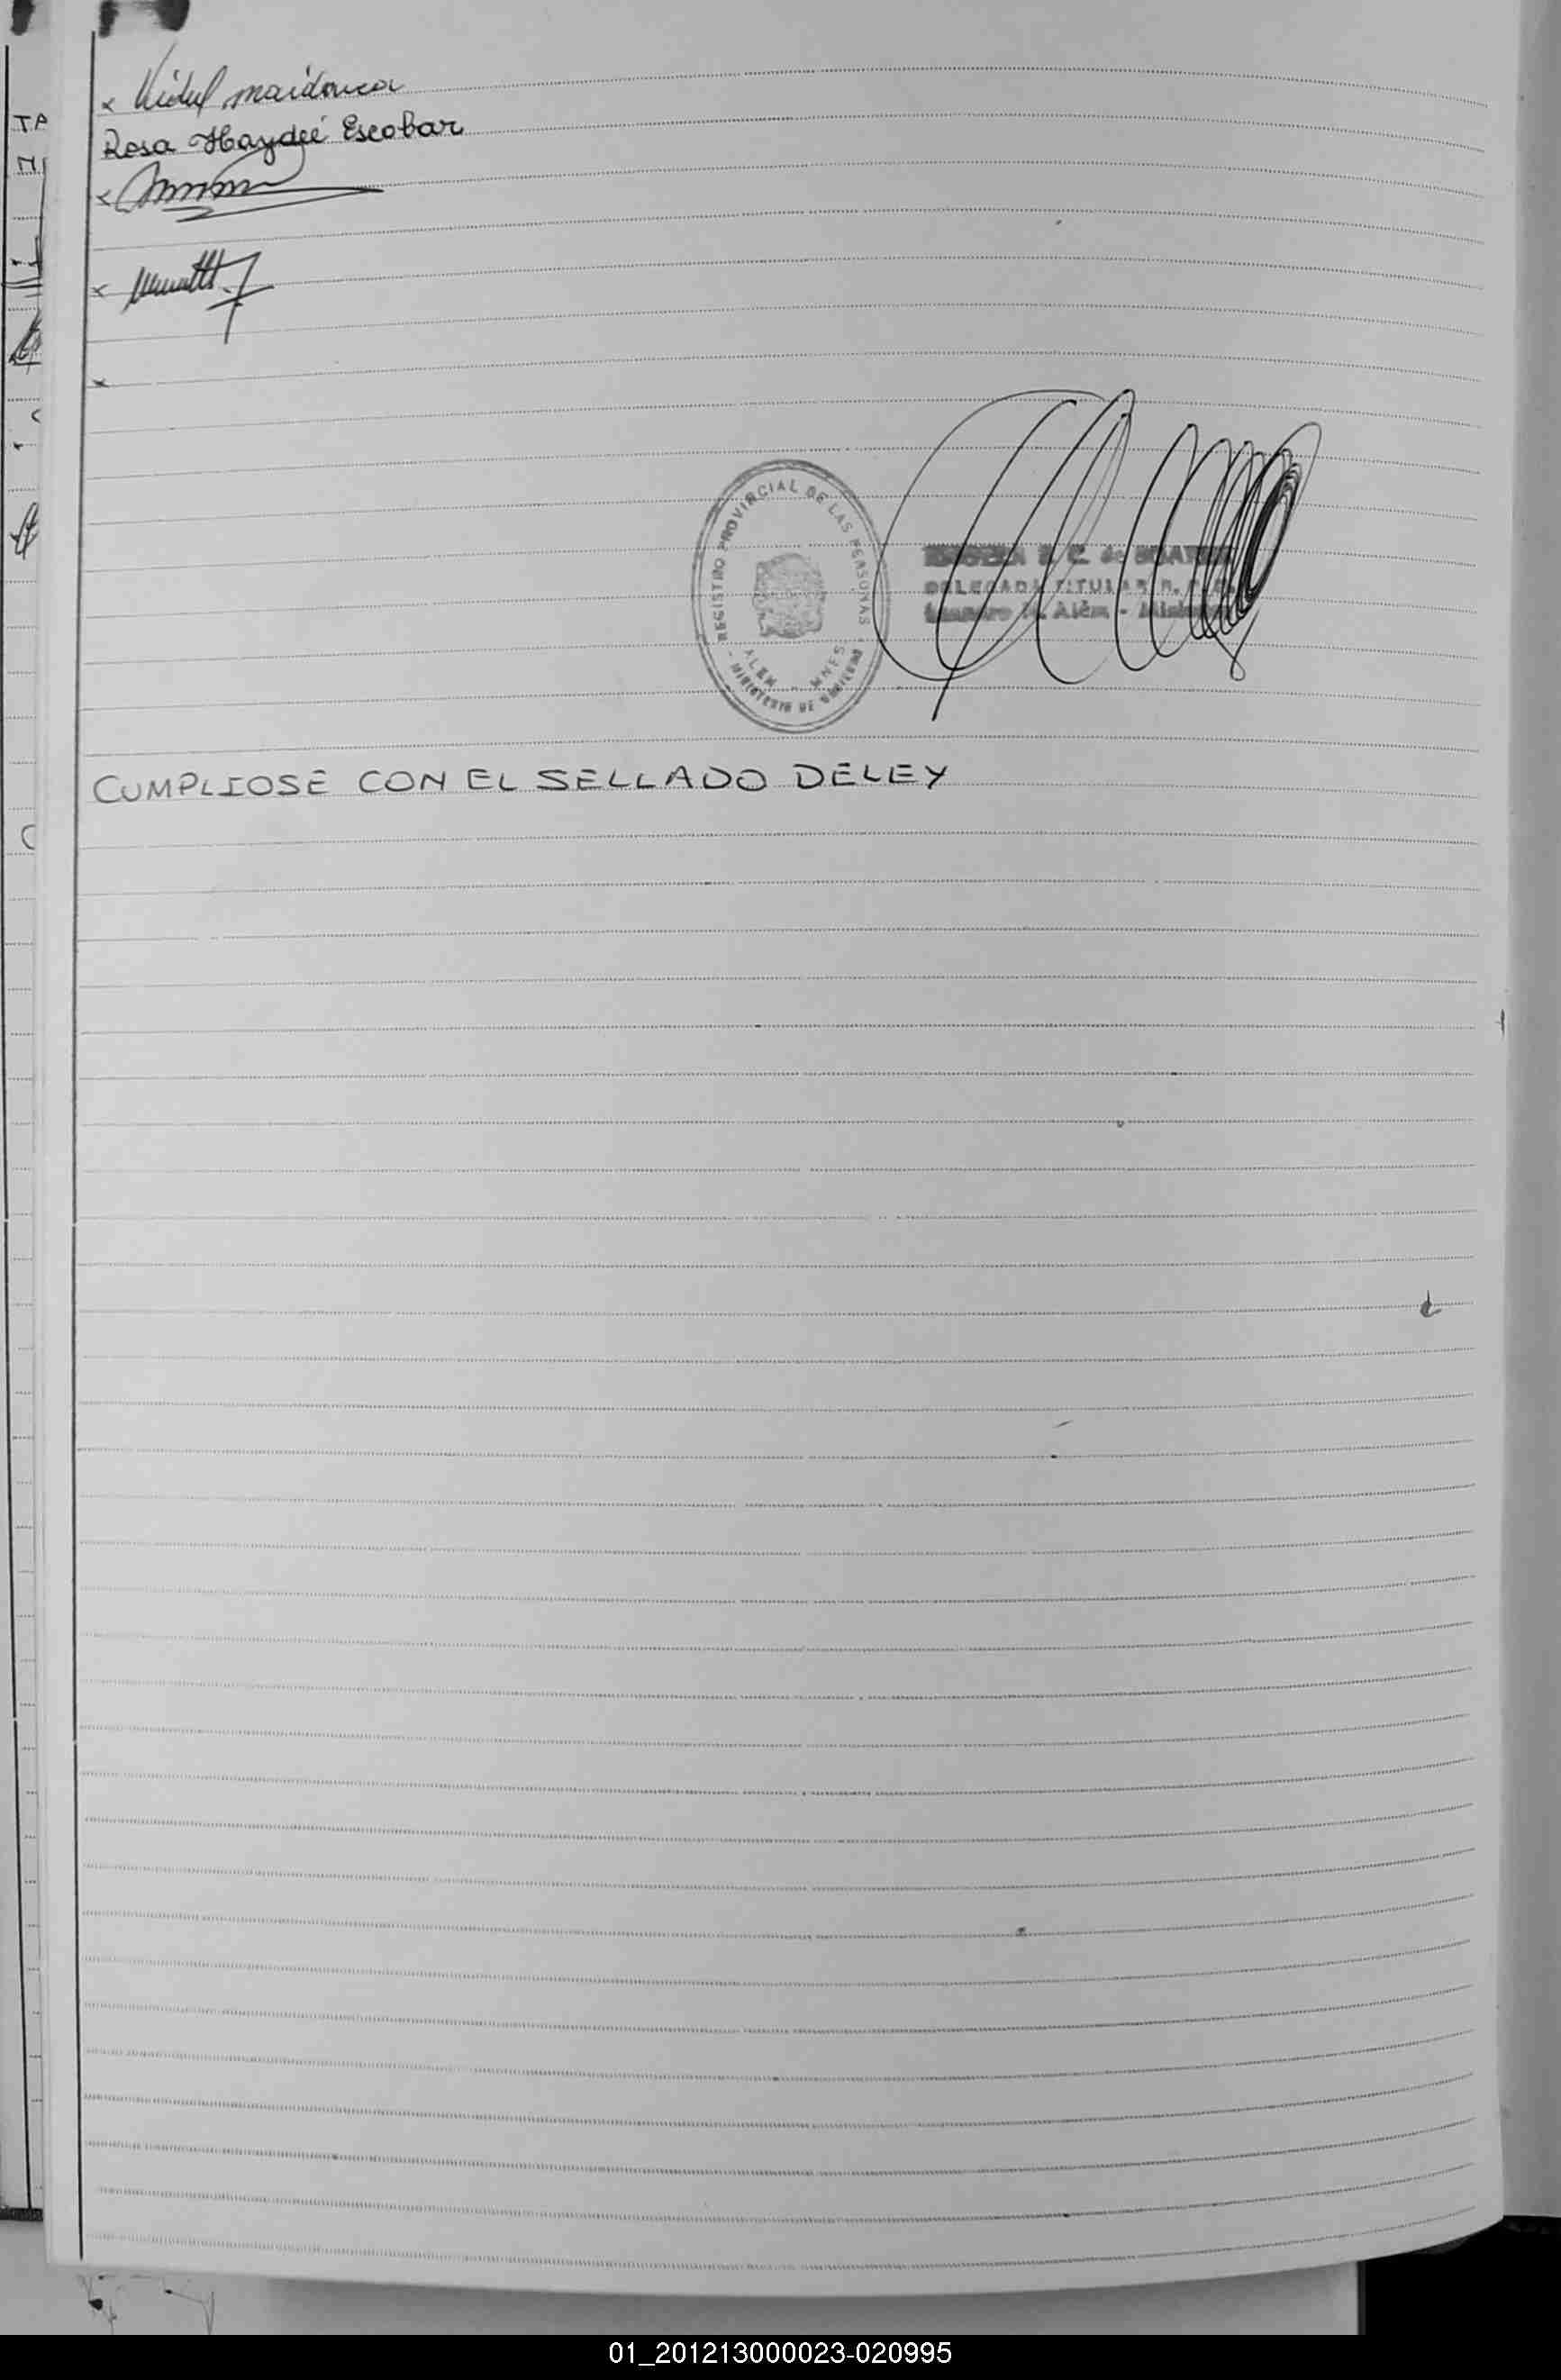 x Vidal maidana
Rosa Haydeé Escobar
x
x
x
REGISTRO PROVINCIAL DE LAS PERSONAS
ALEM - MNES
- MINISTERIO DE GOBIERNO
de
DELEGADA TITULAR R. P. P.
Leandro N. Além - Misiones
CUMPLIOSE CON EL SELLADO DE LEY
TA
01_201213000023-020995